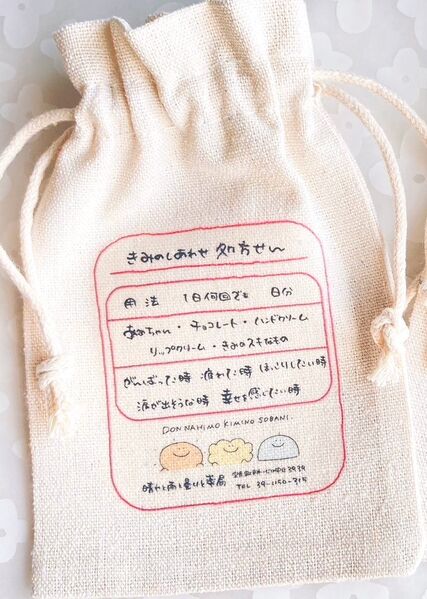 きみのしあわせ 処方せん
用法 1日何回でも 日分
あめちゃん・チョコレート・ハンドクリーム
リップクリーム・きみのスキなもの
がんばった時 疲れた時 ほっこりしたい時
涙が出そうな時 幸せを感じたい時
DON NAHIMO KIMINO SOBANI.
晴れと雨と曇りと薬局
3939
TEL 39-1150-315